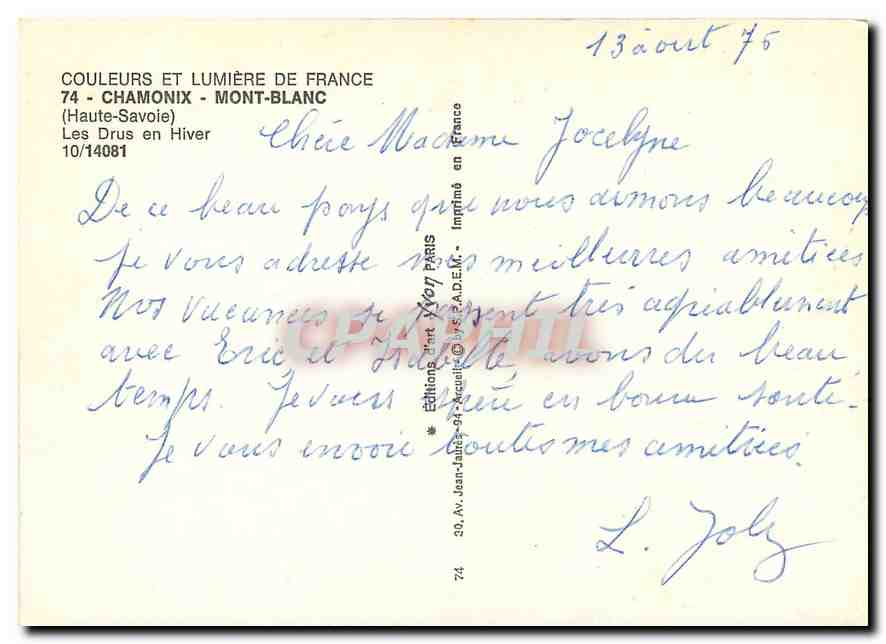 13 août 75
COULEURS ET LUMIÈRE DE FRANCE
74 - CHAMONIX - MONT-BLANC
(Haute-Savoie)
Les Drus en Hiver
10/14081
Chère Madame Jocelyne
De ce beau pays que nous aimons beaucoup
je vous adresse mes meilleures amitiées
Nos vacances se passent très agréablement
avec Eric et Isabelle, avons du beau
temps. Je vous espère en bonne santé.
Je vous envoie toutes mes amitiées.
L. Joly
* Éditions d'art Yvon PARIS
74 20, Av. Jean-Jaurès - 94 - Arcueil - © by S.P.A.D.E.M. - Imprimé en France
CPAPHIL